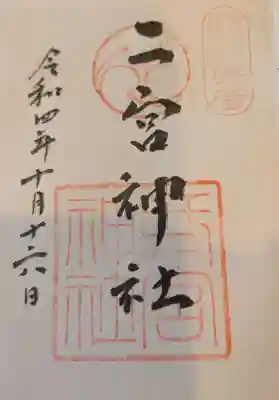 二宮神社
令和四年十月十六日